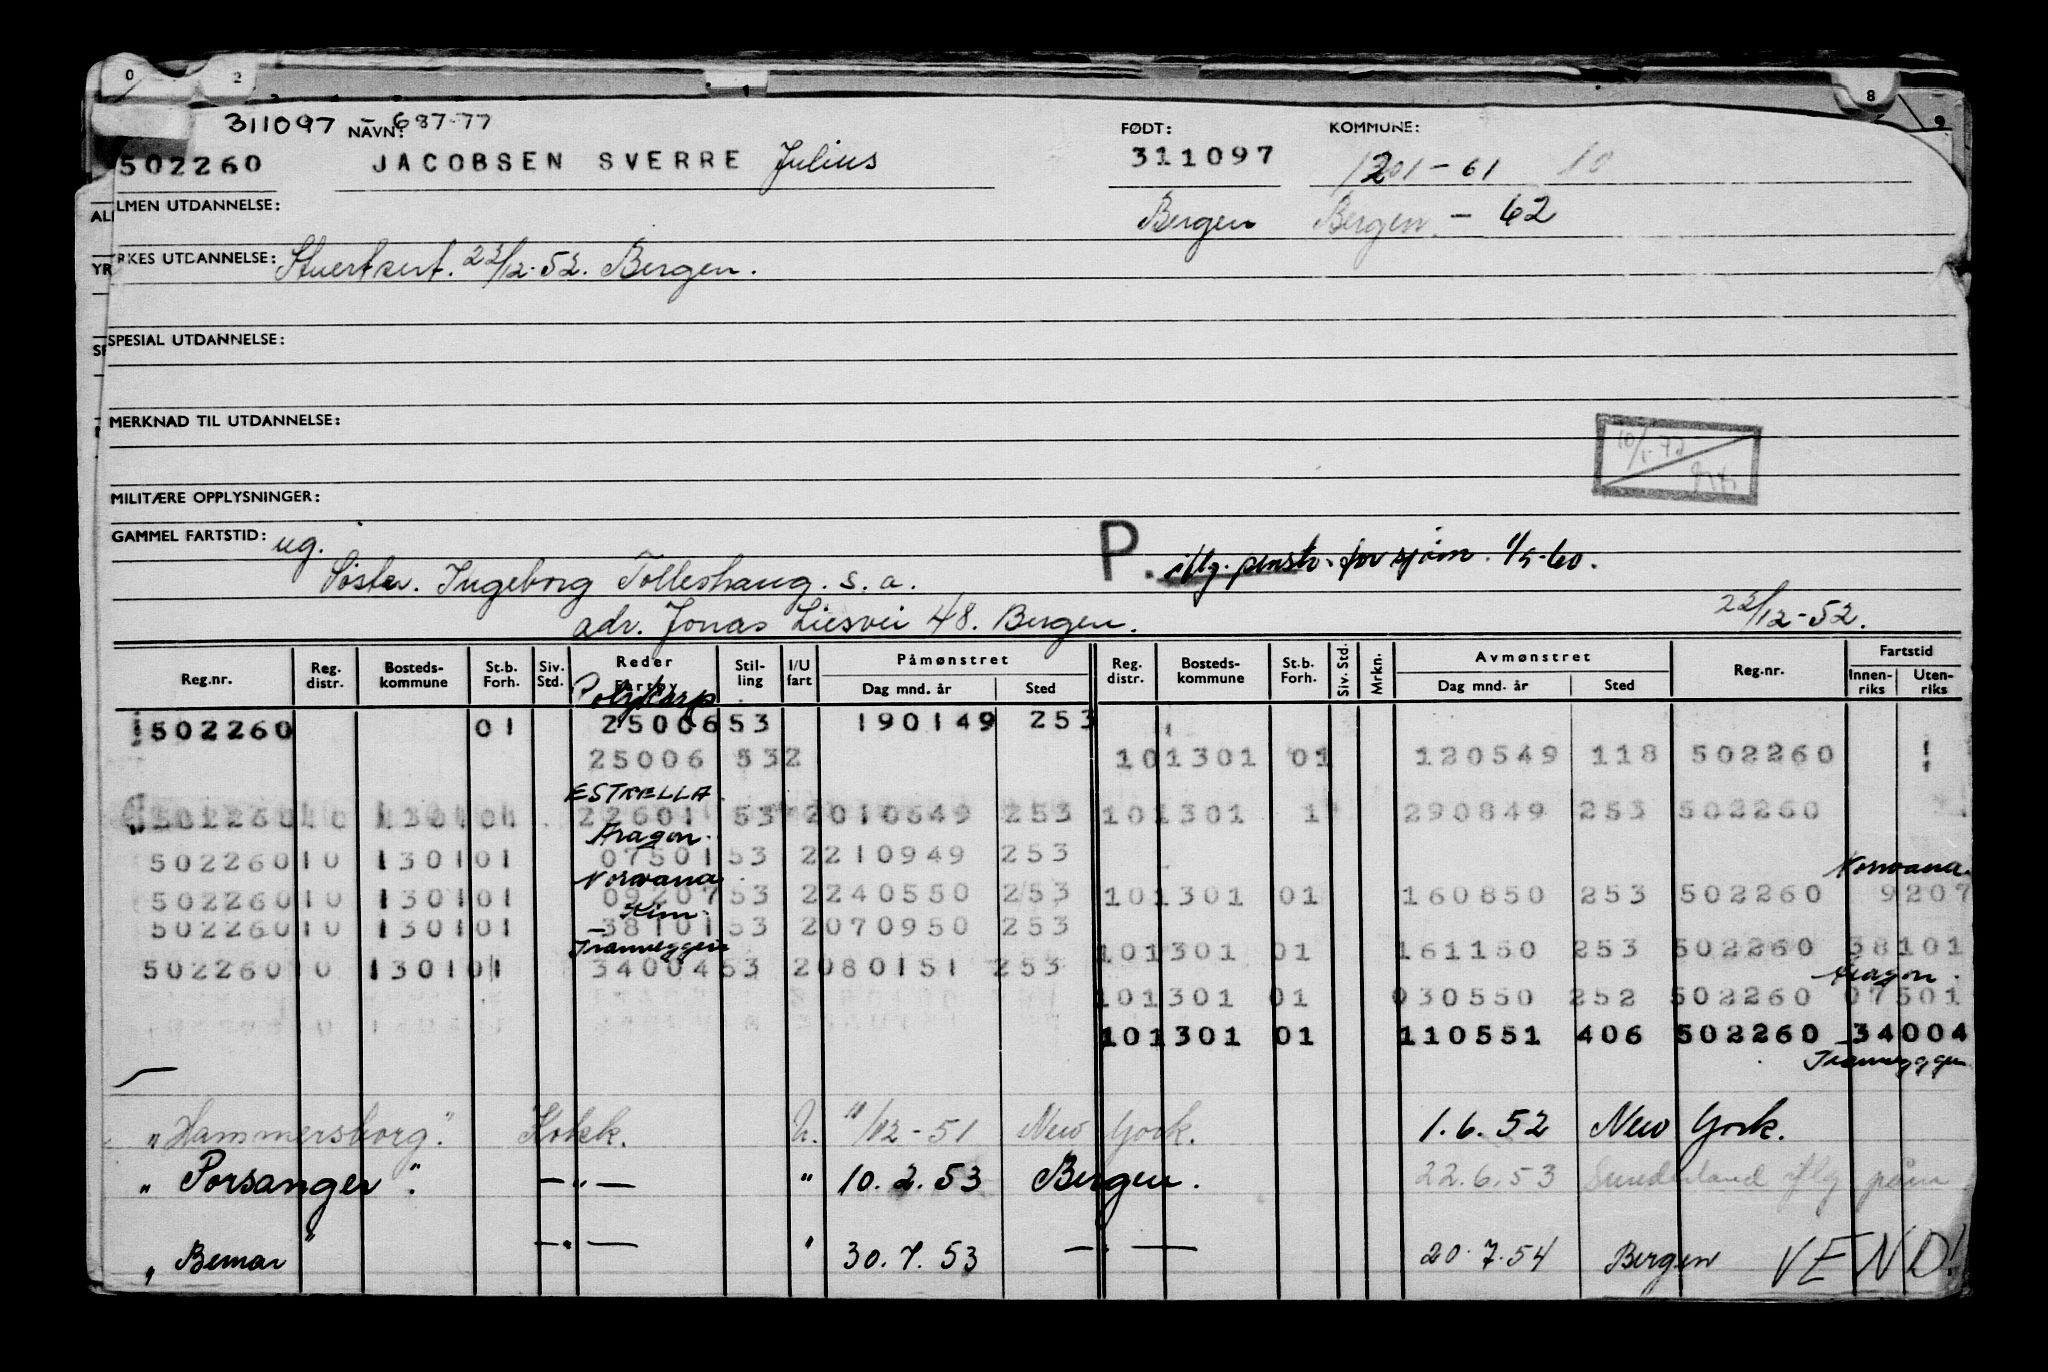 0 2 8 9
311097 - 68777 NAVN: FØDT: KOMMUNE:
502260 JACOBSEN SVERRE Julius 311097 1201-61 10
ALMEN UTDANNELSE: Bergen Bergen - 62
YRKES UTDANNELSE: Stuertsert. 22/12-52. Bergen.
SPESIAL UTDANNELSE:
MERKNAD TIL UTDANNELSE:
MILITÆRE OPPLYSNINGER:
GAMMEL FARTSTID: ug. P. iflg. penstr. for sjöm. 1/5-60.
Søster. Ingeborg Tolleshaug. s.a.
adr. Jonas Liesvei 48. Bergen. 22/12-52.
Reg.nr. Reg. distr. Bosteds-kommune St.b. Forh. Siv. Std. Reder Fartøy Stil-ling I/U fart Påmønstret Dag mnd. år Sted Reg. distr. Bosteds-kommune St.b. Forh. Siv. Std. Mrkn. Avmønstret Dag mnd. år Sted Reg.nr. Fartstid Innen-riks Uten-riks
Polykarp
502260 01 25006 53 190149 253
25006 532 101301 01 120549 118 502260
ESTRELLA
502260 10 1301 01 22601 53 2 010649 253 101301 1 290849 253 502260
Aragon.
502260 10 1301 01 07501 53 2 210949 253
Norvana Norvana
502260 10 1301 01 09207 53 2 240550 253 101301 01 160850 253 502260 9207
Kim.
502260 10 1301 01 38101 53 2 070950 253
101301 01 161150 253 502260 38101
Tranveggen
502260 10 1301 01 34004 53 2 080151 253
Aragon.
101301 01 030550 252 502260 07501
101301 01 110551 406 502260 34004
Tranveggen
"Hammersborg". Kokk. U. 11/12-51 New York. 1.6.52 New York.
"Porsanger". -"- " 10.2.53 Bergen. 22.6.53 Sunderland iflg påm
"Bemar" -"- " 30.7.53 -"- 20.7.54 Bergen VEND!